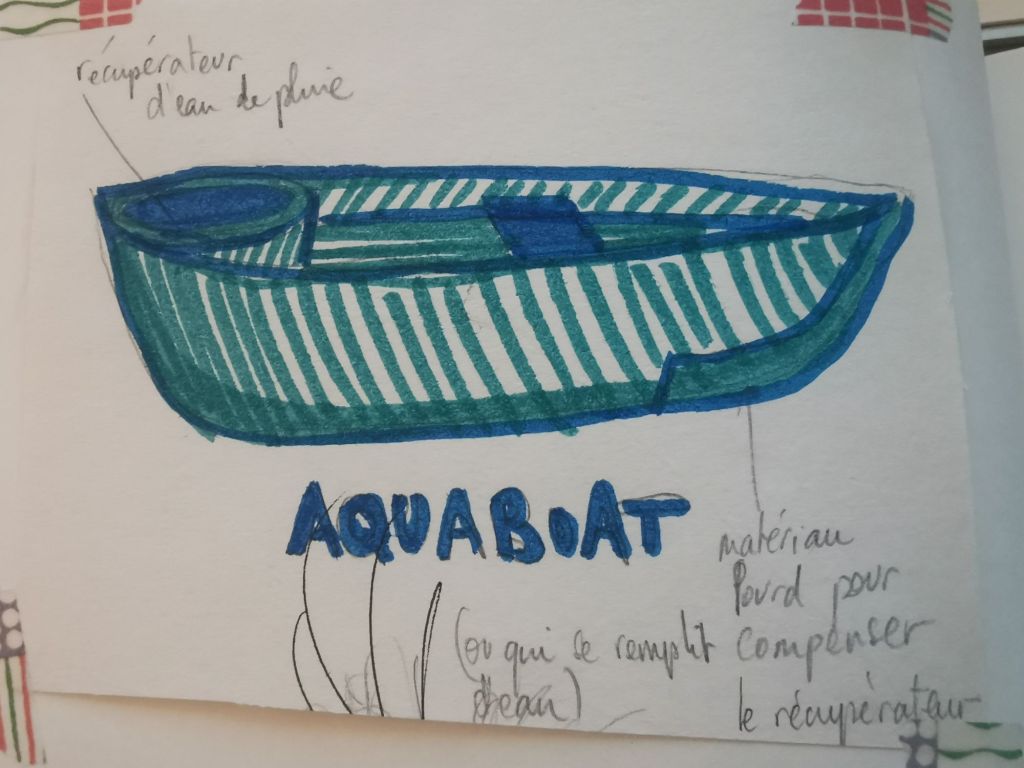 récupérateur
d'eau de pluie
AQUABOAT
matériau
lourd pour
compenser
le récupérateur
(ou qui se remplit
d'eau)